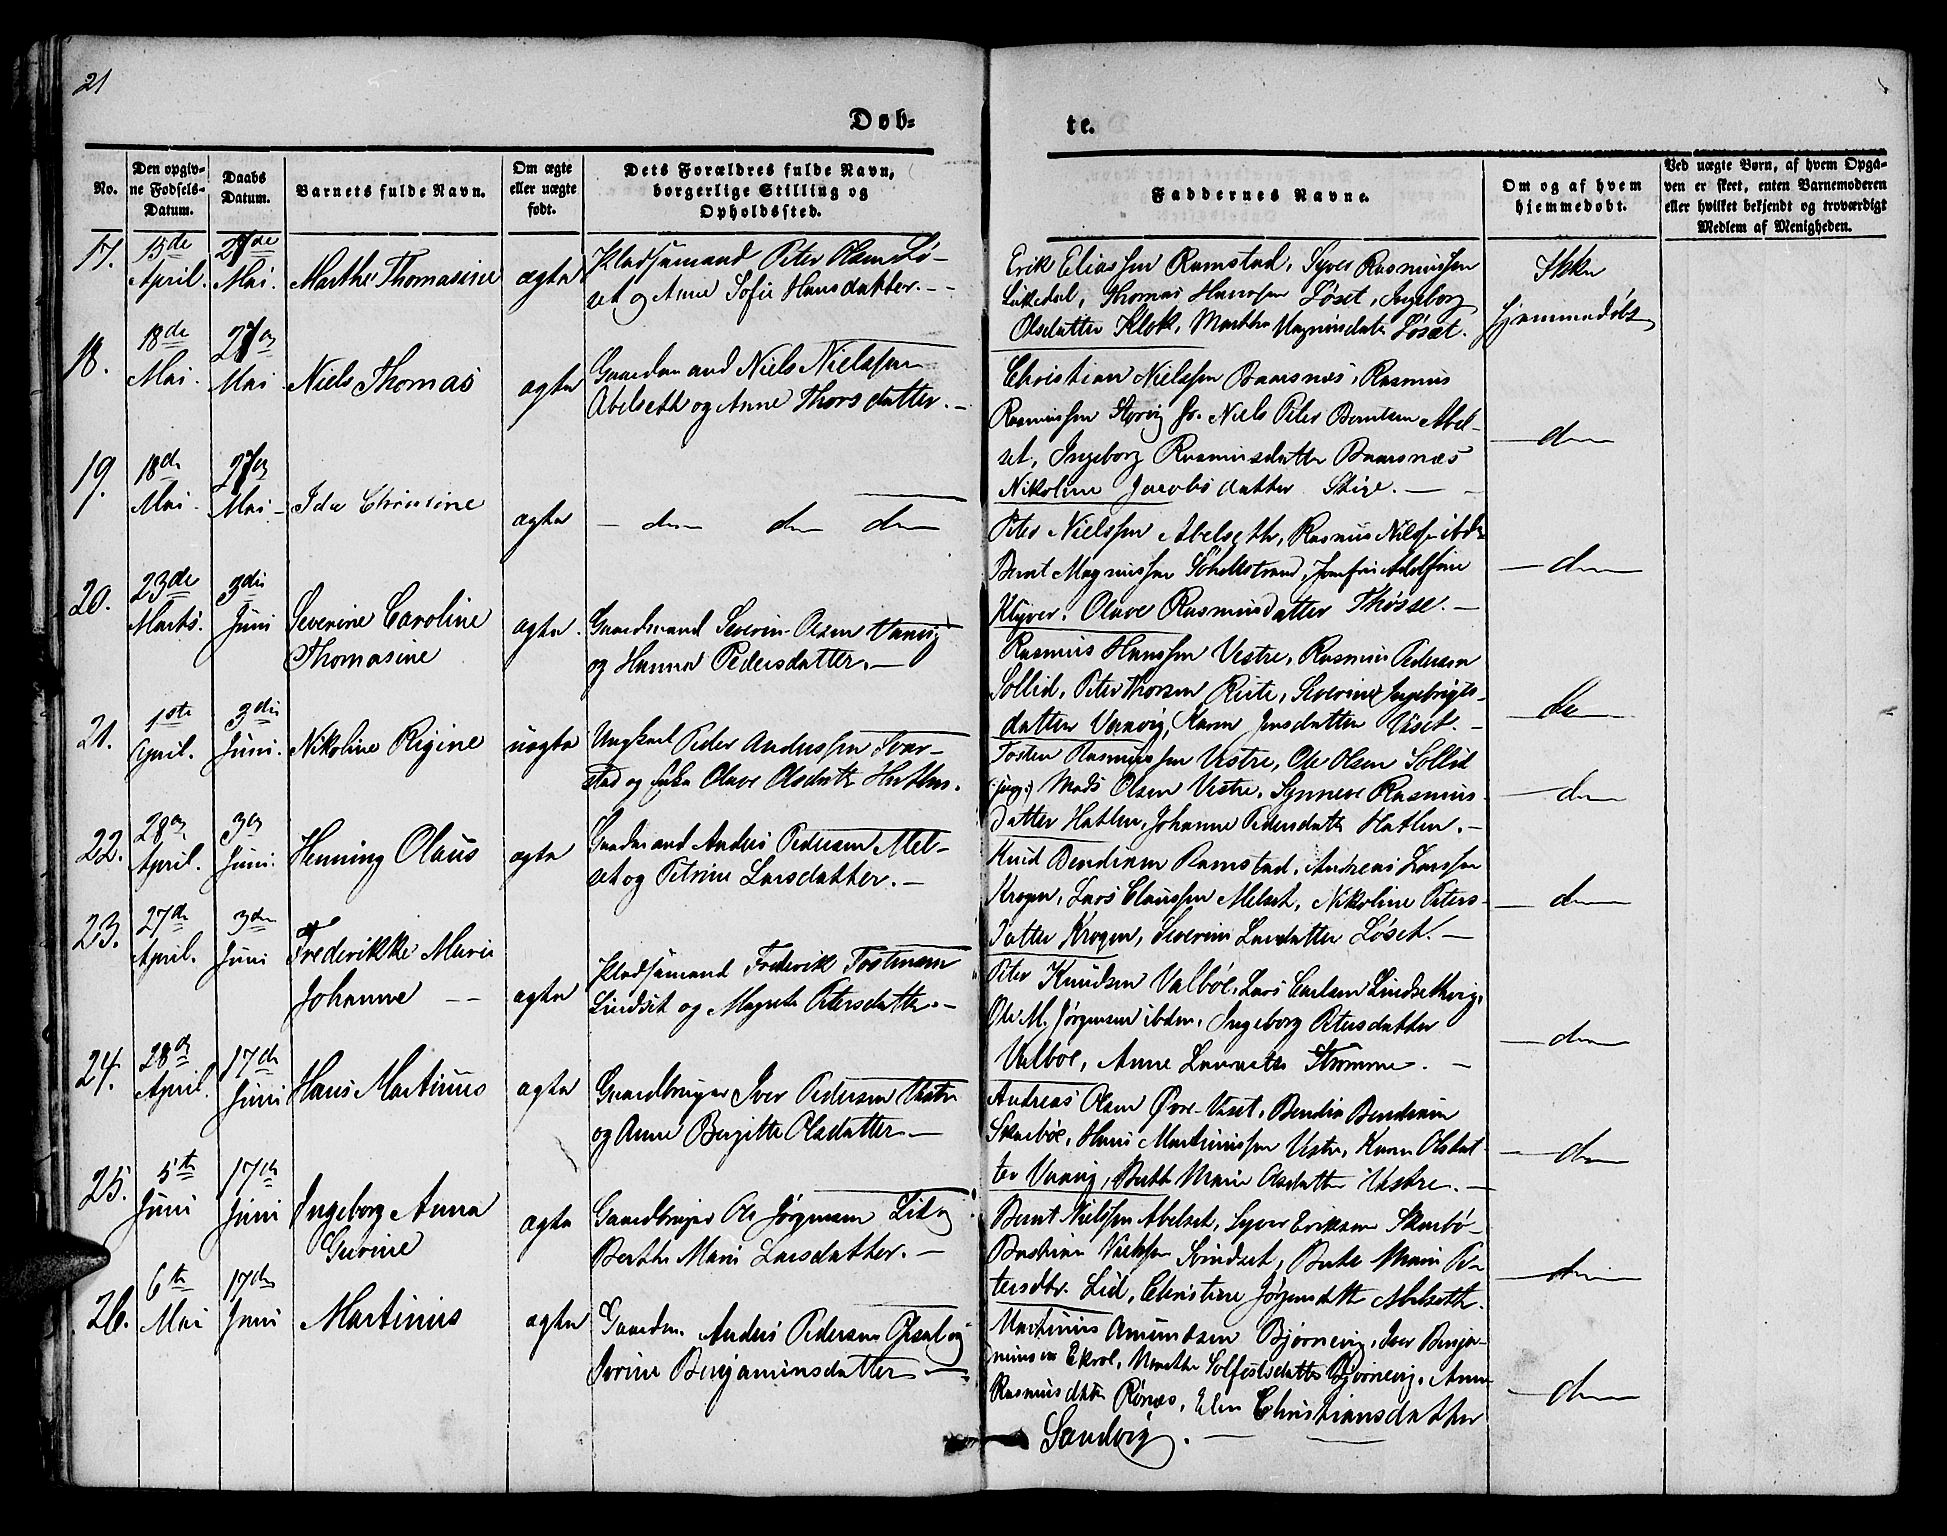 21
Døb-
te.
No.
Den opgiv-
ne Fødsels-
Datum.
Daabs
Datum.
Barnets fulde Navn.
Om ægte
eller uægte
født.
Dets Forældres fulde Navn,
borgerlige Stilling og
Opholdssted.
Faddernes Navne.
Om og af hvem
hjemmedøbt.
Ved uægte Børn, af hvem Opga-
ven er skeet, enten Barnemoderen
eller hvilket bekjendt og troværdigt
Medlem af Menigheden.
17.
15de
April.
27de
Mai.
Marthe Thomasine
ægte
Pladsemand Peter Olsen Lø-
set og Anne Sofie Hansdatter.
Erik Eliassen Ramstad, Syver Rasmussen
Thomas Hanssen Løset, Ingeborg
Olsdatter Klok, Marthe Magnusdatr Løset.
Ikke
hjemmedøbt
18.
18de
Mai.
27de
Mai.
Niels Thomas
ægte
Gaardmand Niels Nielssen
Abelseth og Anne Thorsdatter.
Christian Nielssen Baarsnæs, Rasmus
Rasmussen Storvig Niels Peter Berntsen Abel-
set, Ingeborg Rasmusdatter Baarsnæs
Nikoline Jacobsdatter
do
19.
18de
Mai.
27de
Mai
Ida Christine
ægte
do do do
Peter Nielssen Abelseth, Rasmus Nilsen ibdn
Bernt Magnussen Josefine Adolfine
Klyver. Olave Rasmusdatter Thøsse.
do
20.
23de
Marts.
3die
Juni
Severine Caroline
Thomasine
ægte
Gaardmand Severin Olsen Varvig
og Hanna Pedersdatter.
Rasmus Hanssen Vestre, Rasmus Pedersen
Sollid, Peter Thorsen Rite, Severine Ingebrigts-
datter Varvig, Karen Jensdatter Uset.
do
21.
1ste
April.
3die
Juni.
Nikoline Rigine
uægte
Ungkarl Peder Anderssen Svor-
stad og Pike Olave Olsdatter Hatlen.
Tosten Rasmussen Vestre, Ole Olsen Sollid
(jung.) Mads Olsen Vestre, Synneve Rasmus-
datter Hatlen, Johanne Pedersdatter Hatlen.
do
22.
28de
April.
3de
Juni.
Henning Olaus
ægte
Gaardmand Anders Pedersen Mel-
set og Petrine Larsdatter.
Knud Bendixen Ramstad, Andreas Larssen
Krogen, Lars Claussen Melset, Nikoline Peters-
datter Krogen, Severine Larsdatter Løset.
do
23.
27de
April.
3de
Juni
Frederikke Marie
Johanne
ægte
Pladsemand Frederik Tostensen
Lindset og Magreta Petersdatter.
Peter Knudsen Valbøe, Lars Carlsen Lindsethvig,
Ole M. Jørgensen ibdn, Ingeborg Petersdatter
Valbøe, Anne Strømme.
do
24.
28de
April.
17de
Juni
Hans Martinus
ægte
Gaardbruger Iver Pedersen Vestre
og Anne Bergitte Olsdatter.
Andreas Olsen Øvre-Uset, Bendix Bendixen
Skarbøe, Hans Martinussen Vestre, Karen Olsdat-
ter Varvig, Berthe Marie Olsdatter Vestre.
do
25.
5te
Juni
17de
Juni
Ingeborg Anna
Gurine
ægte
Gaardbruger Ole Jørgensen Lid og
Berthe Marie Larsdatter.
Bernt Nielssen Abelset, Syver Eriksen Skarbø-
Bastian Berte Marie Pe-
tersdtr. Lid, Christine Jørgensdtr Abelseth.
do
26.
6te
Mai
17de
Juni
Martinus
ægte
Gaardm. Anders Pedersen og
Sorine Benjaminsdatter
Martinus Amundsen Bjørnevig, Iver Benja-
minsen Ekrol, Marthe Solfestsdatter Bjørnevig, Anne
Rasmusdatter Rønæs, Elen Christiansdatter
Sandvig.
do